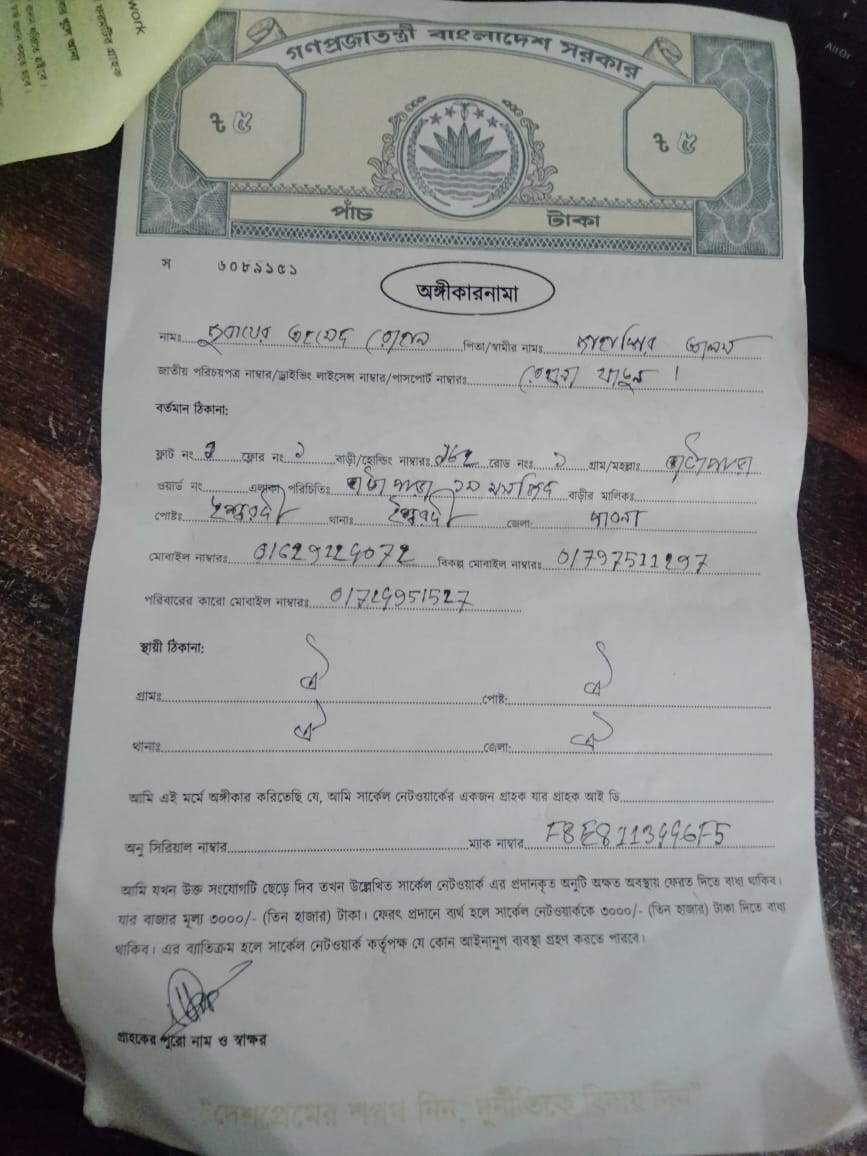 work
AltGr
গণপ্রজাতন্ত্রী বাংলাদেশ সরকার
৳ ৫ ৳ ৫
পাঁচ টাকা
স ৬০৮৯১৫১
অঙ্গীকারনামা
নামঃ জুবায়ের আহমেদ পিতা/স্বামীর নামঃ আলম
জাতীয় পরিচয়পত্র নাম্বার/ড্রাইভিং লাইসেন্স নাম্বার/পাসপোর্ট নাম্বারঃ
বর্তমান ঠিকানা:
ফ্লাট নং ফ্লোর নং ১ বাড়ী/হোল্ডিং নাম্বারঃ রোড নংঃ ১ গ্রাম/মহল্লাঃ
ওয়ার্ড নং এলাকা পরিচিতিঃ মসজিদ বাড়ীর মালিকঃ
পোষ্টঃ ঈশ্বরদী থানাঃ ঈশ্বরদী জেলা: পাবনা
মোবাইল নাম্বারঃ বিকল্প মোবাইল নাম্বারঃ 01797511297
পরিবারের কারো মোবাইল নাম্বারঃ
স্থায়ী ঠিকানা:
গ্রামঃ ঐ পোষ্ট: ঐ
থানাঃ ঐ জেলা: ঐ
আমি এই মর্মে অঙ্গীকার করিতেছি যে, আমি সার্কেল নেটওয়ার্কের একজন গ্রাহক যার গ্রাহক আই ডি
অনু সিরিয়াল নাম্বার ম্যাক নাম্বার
আমি যখন উক্ত সংযোগটি ছেড়ে দিব তখন উল্লেখিত সার্কেল নেটওয়ার্ক এর প্রদানকৃত অনুটি অক্ষত অবস্থায় ফেরত দিতে বাধ্য থাকিব।
যার বাজার মূল্য ৩০০০/- (তিন হাজার) টাকা। ফেরৎ প্রদানে ব্যর্থ হলে সার্কেল নেটওয়ার্ককে ৩০০০/- (তিন হাজার) টাকা দিতে বাধ্য
থাকিব। এর ব্যতিক্রম হলে সার্কেল নেটওয়ার্ক কর্তৃপক্ষ যে কোন আইনানুগ ব্যবস্থা গ্রহণ করতে পারবে।
গ্রাহকের পুরো নাম ও স্বাক্ষর
"দেশপ্রেমের শপথ নিন, দুর্নীতিকে বিদায় দিন"